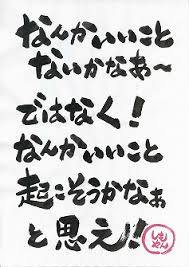 なんかいいこと
ないかなあ～
ではなく!
なんかいいこと
起こそうかなぁ
と思え!!